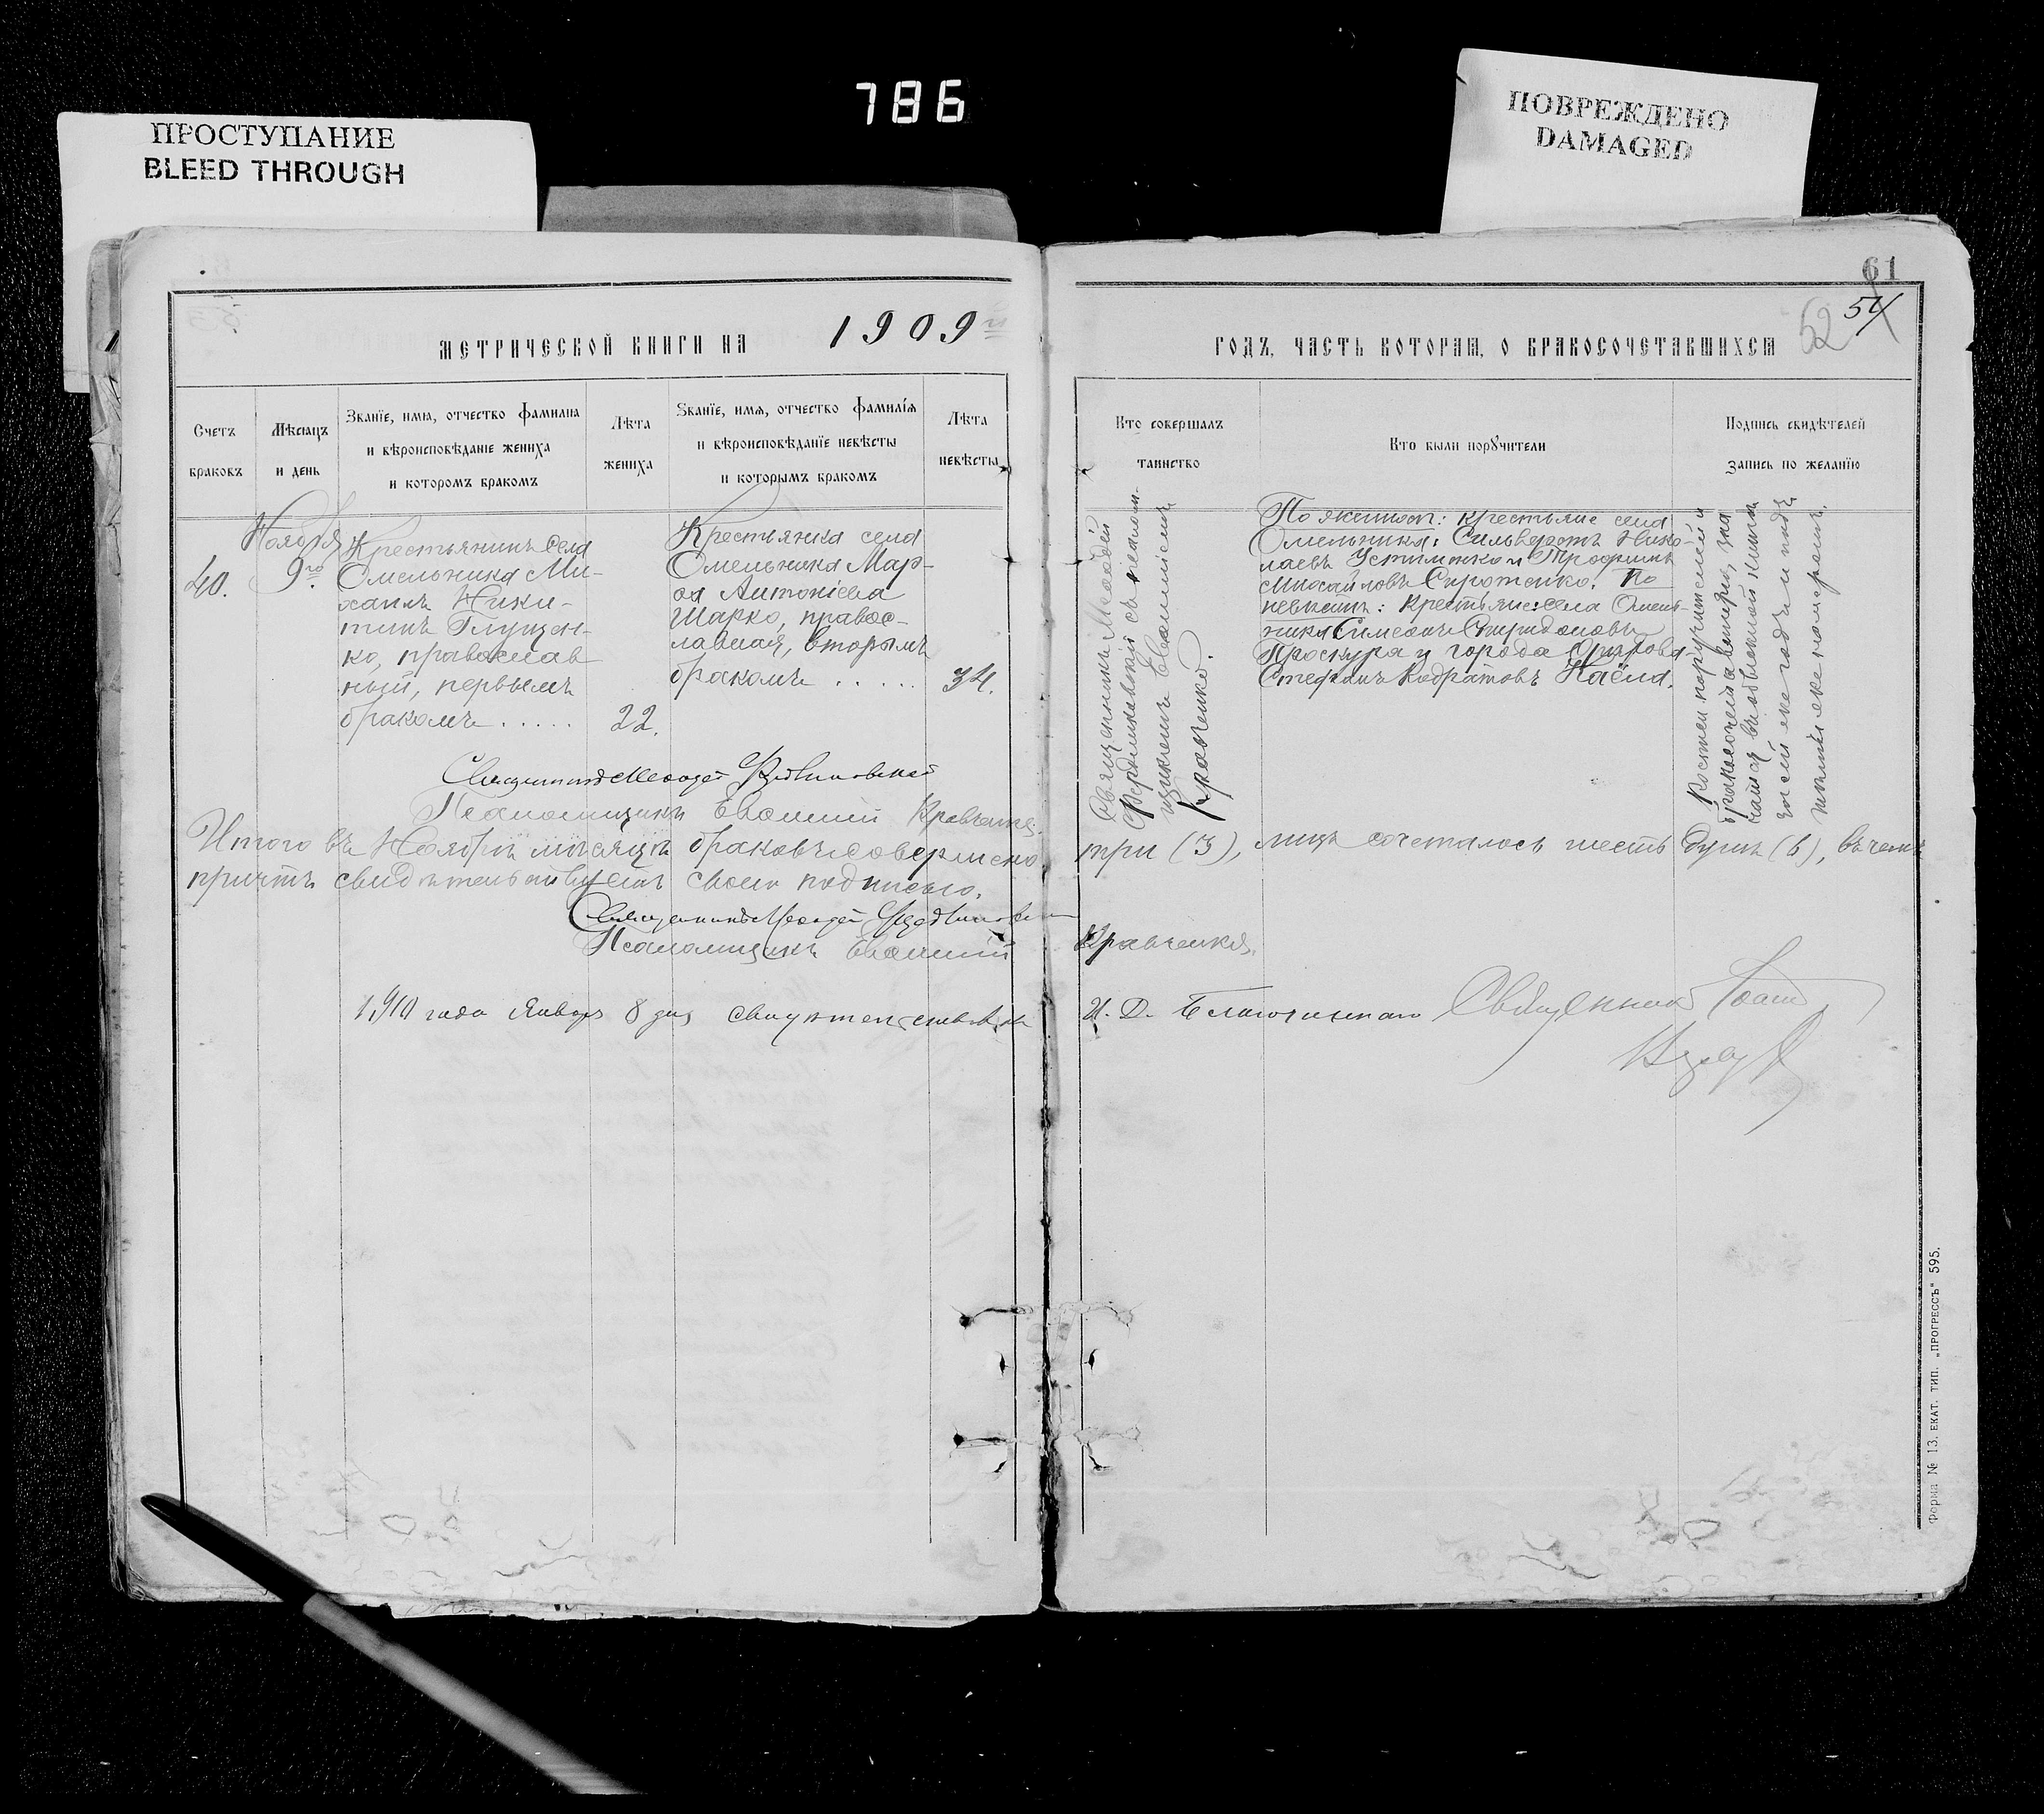 786
ПРОСТУПАНИЕ
BLEED THROUGH
ПОВРЕЖДЕНО
DAMAGED
61
54
52
МЕТРИЧЕСКОЙ КНИГИ НА 1909
ГОДЪ, ЧАСТЬ ВТОРАЯ, О БРАКОСОЧЕТАВШИХСЯ
Счетъ
браковъ
Мѣсяцъ
и день
Званіе, имя, отчество фамилія
и вѣроисповѣданіе жениха
и которомъ бракомъ
Лѣта
жениха
Званїе, имя, отчество фамилїя
и вѣроисповѣданїе невѣсты
и которымъ бракомъ
Лѣта
невѣсты
Кто совершалъ
таинство
Кто были порꙋчители
Подпись свидѣтелей
запись по желанїю
Ноября
40.
9го
Крестьянинъ села
Омельника Ми-
хаилъ Ники-
тинъ Глущен-
ко, православ
ный, первымъ
бракомъ .....
22.
Крестьянка села
Омельника Мар-
ѳа Антонiева
Шарко, правос-
лавная, вторымъ
бракомъ .....
34.
Священникъ Меѳодій
съ псалом-
щикомъ Евѳиміемъ
Кравченко.
По женихѣ: крестьяне села
Омельника: Сильвестръ Нико-
лаевъ Устименко и Трофимъ
Михайловъ Сиротенко. По
невѣстѣ: крестьяне села Омель-
ника Симеонъ Спиридоновъ
Проскура и города
Стефанъ Кодратовъ
поручителей и
за
въ обыскной книгѣ
за сей же годъ и подъ
тѣмъ же номеромъ.
Священникъ Меѳодій
Псаломщикъ Евѳимій Кравченко.
Итого въ Ноябрѣ мѣсяцѣ браковъ совершено
три (3), лицъ сочеталось шесть душъ (6), въ чемъ
причтъ свидѣтельствуемъ своею подписью.
Священникъ Меѳодій
Псаломщикъ Евѳимій
Кравченко.
1910 года Января 8 дня свидѣтельствовалъ
И. Д. Благочиннаго Священник
Форма № 13. ЕКАТ. ТИП. „ПРОГРЕССЪ“ 595.